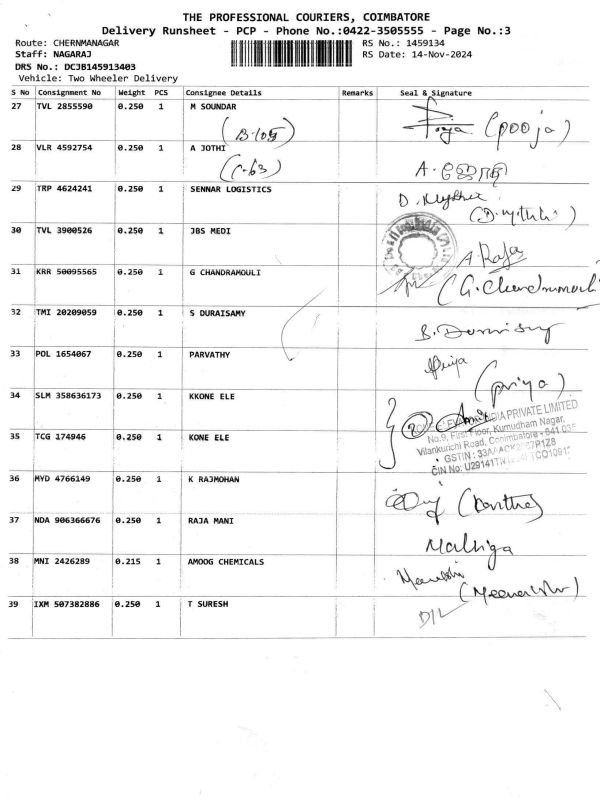 THE PROFESSIONAL COURIERS, COIMBATORE
Delivery Runsheet - PCP - Phone No.:0422-3505555 - Page No.:3
Route: CHERNMANAGAR RS No.: 1459134
Staff: NAGARAJ RS Date: 14-Nov-2024
DRS No.: DCJB145913403
Vehicle: Two Wheeler Delivery
S No Consignment No Weight PCS Consignee Details Remarks Seal & Signature
27 TVL 2855590 0.250 1 M SOUNDAR
(pooja)
28 VLR 4592754 0.250 1 A JOTHI
(C-63) A. ஜோதி
29 TRP 4624241 0.250 1 SENNAR LOGISTICS
30 TVL 3900526 0.250 1 JBS MEDI
A. Raja
31 KRR 50095565 0.250 1 G CHANDRAMOULI
(G. Chandramouli
32 TMI 20209059 0.250 1 S DURAISAMY
33 POL 1654067 0.250 1 PARVATHY
Priya
(priya)
34 SLM 358636173 0.250 1 KKONE ELE
INDIA PRIVATE LIMITED
No.9, First Floor, Kumudham Nagar,
35 TCG 174946 0.250 1 KONE ELE
Vilankurichi Road, Coimbatore - 641 035
GSTIN :
CIN No:
36 MYD 4766149 0.250 1 K RAJMOHAN
37 NDA 906366676 0.250 1 RAJA MANI
Malliga
38 MNI 2426289 0.215 1 AMOOG CHEMICALS
39 IXM 507382886 0.250 1 T SURESH
D/L